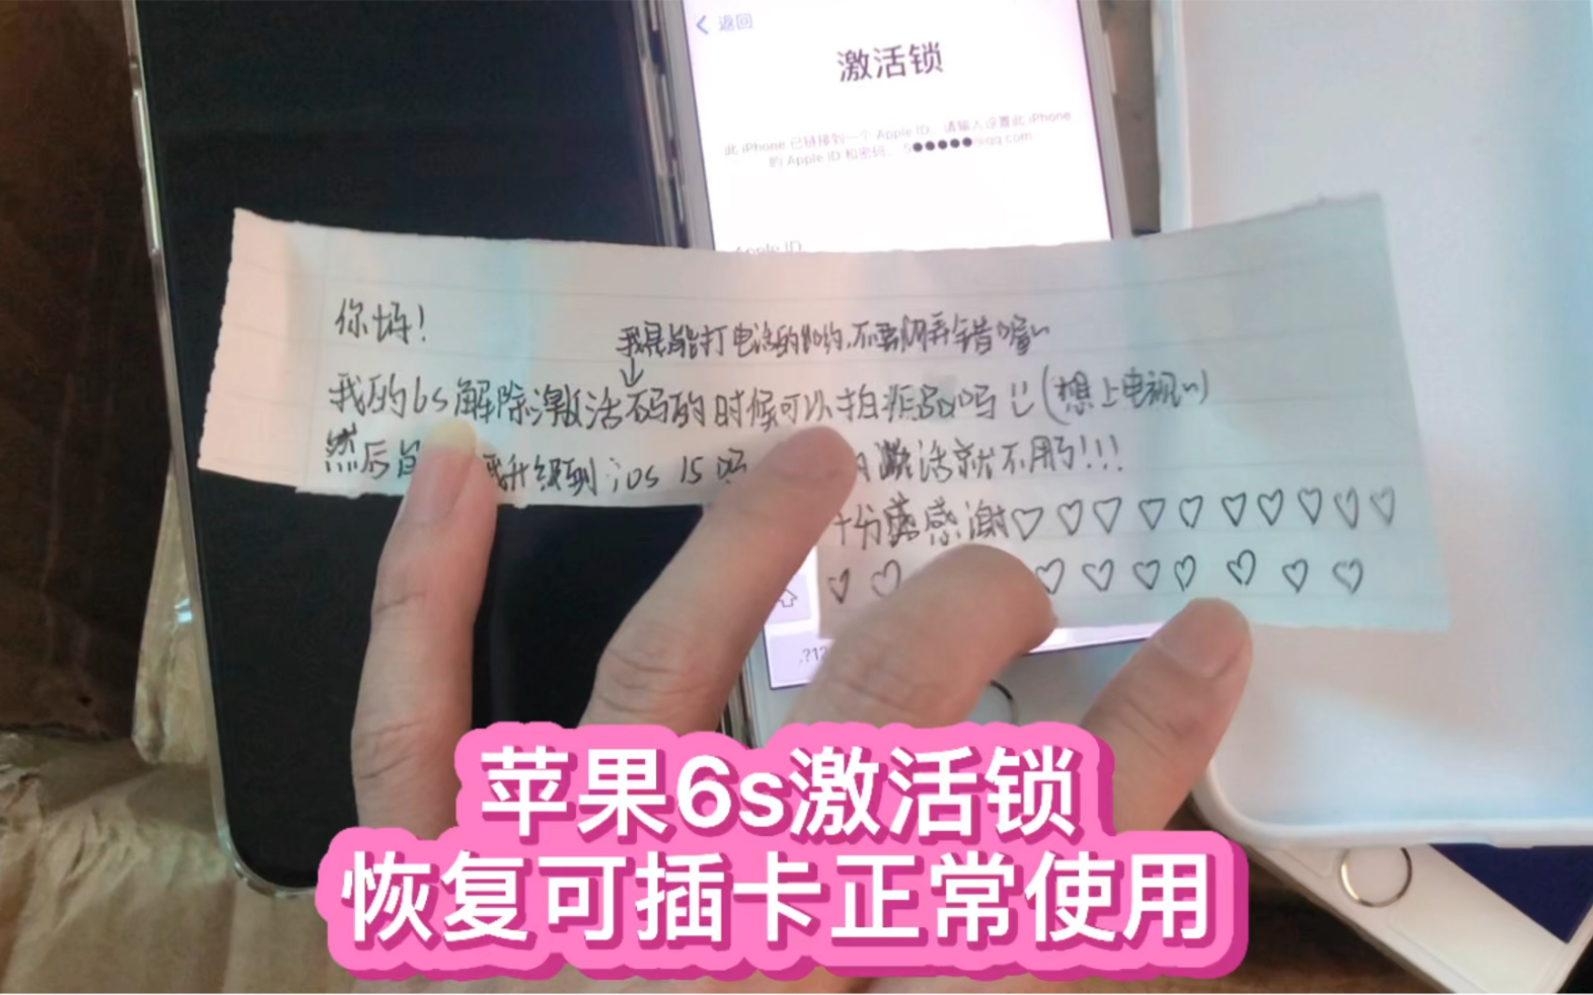 返回
激活锁
此 iPhone 已链接到一个 Apple ID。请输入设置此 iPhone
的 Apple ID 和密码。 s●●●●●@qq.com
Apple ID
你好!
我是能打电话的80的,不要弄错喔~
我的6s解除激活码的时候可以拍视频吗(想上电视~)
然后 升级到 iOS 15 激活就不用了!!!
十分感谢♡♡♡♡♡♡♡♡♡♡
♡♡♡♡♡♡♡♡♡
.?12
苹果6s激活锁
恢复可插卡正常使用